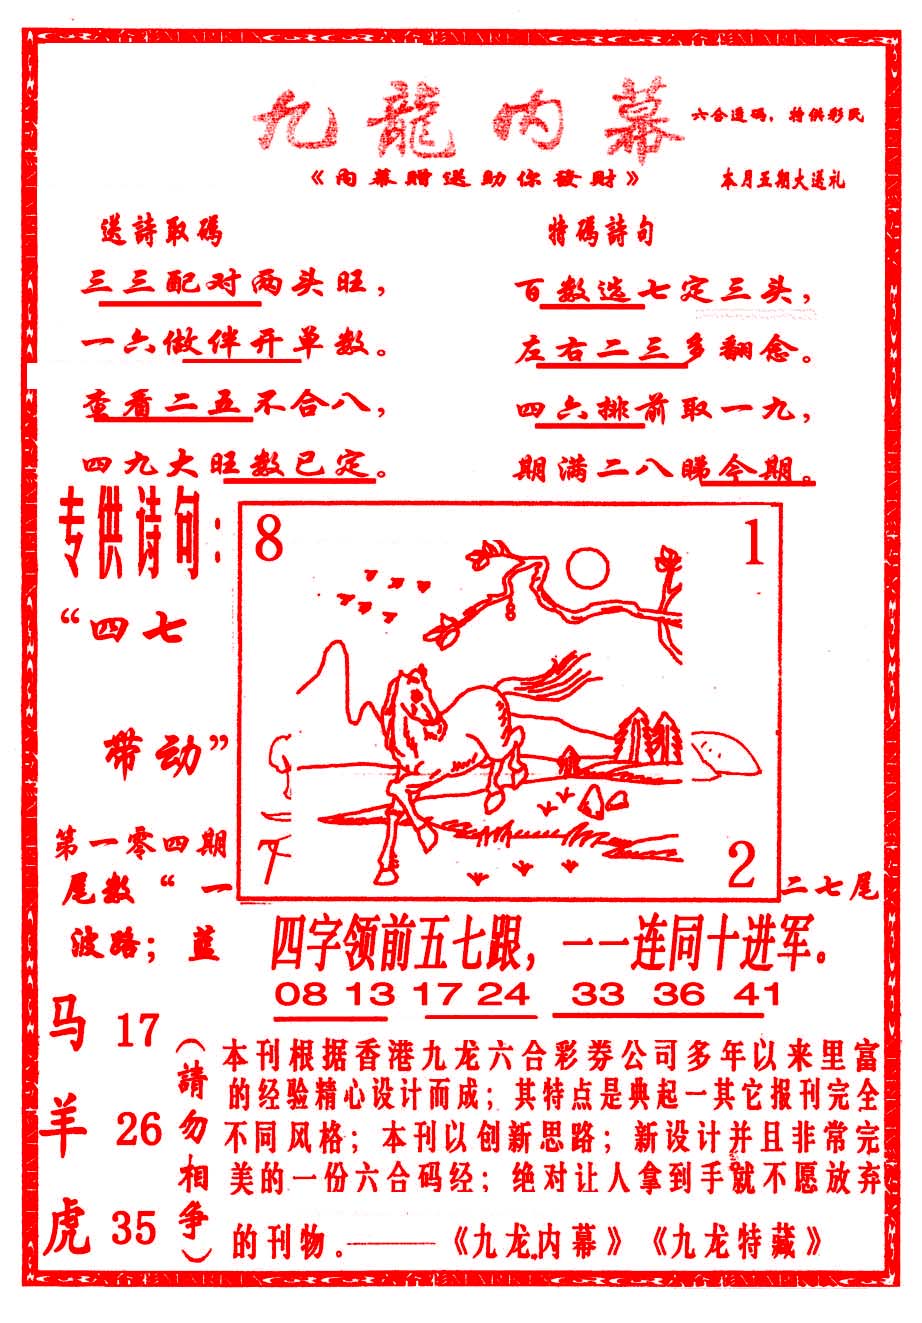 九龍内幕
六合透码，特供彩民
《内幕赠送助你發财》
本月五期大送礼
送詩取碼
三三配对两头旺，
一六做伴开单数。
查看二五不合八，
四九大旺数已定。
特碼詩句
百数选七定三头，
左右二三多翻念。
四六排前取一九，
期满二八睇今期。
专供诗句：
“四七
带动”
第一零四期
尾数“一
二七尾
波路；蓝
8
1
2
四字领前五七跟，一一连同十进军。
08 13 17 24 33 36 41
马 17
羊 26
虎 35
（請勿相争）
本刊根据香港九龙六合彩劵公司多年以来里富
的经验精心设计而成；其特点是典起一其它报刊完全
不同风格；本刊以创新思路；新设计并且非常完
美的一份六合码经；绝对让人拿到手就不愿放弃
的刊物。———《九龙内幕》《九龙特藏》